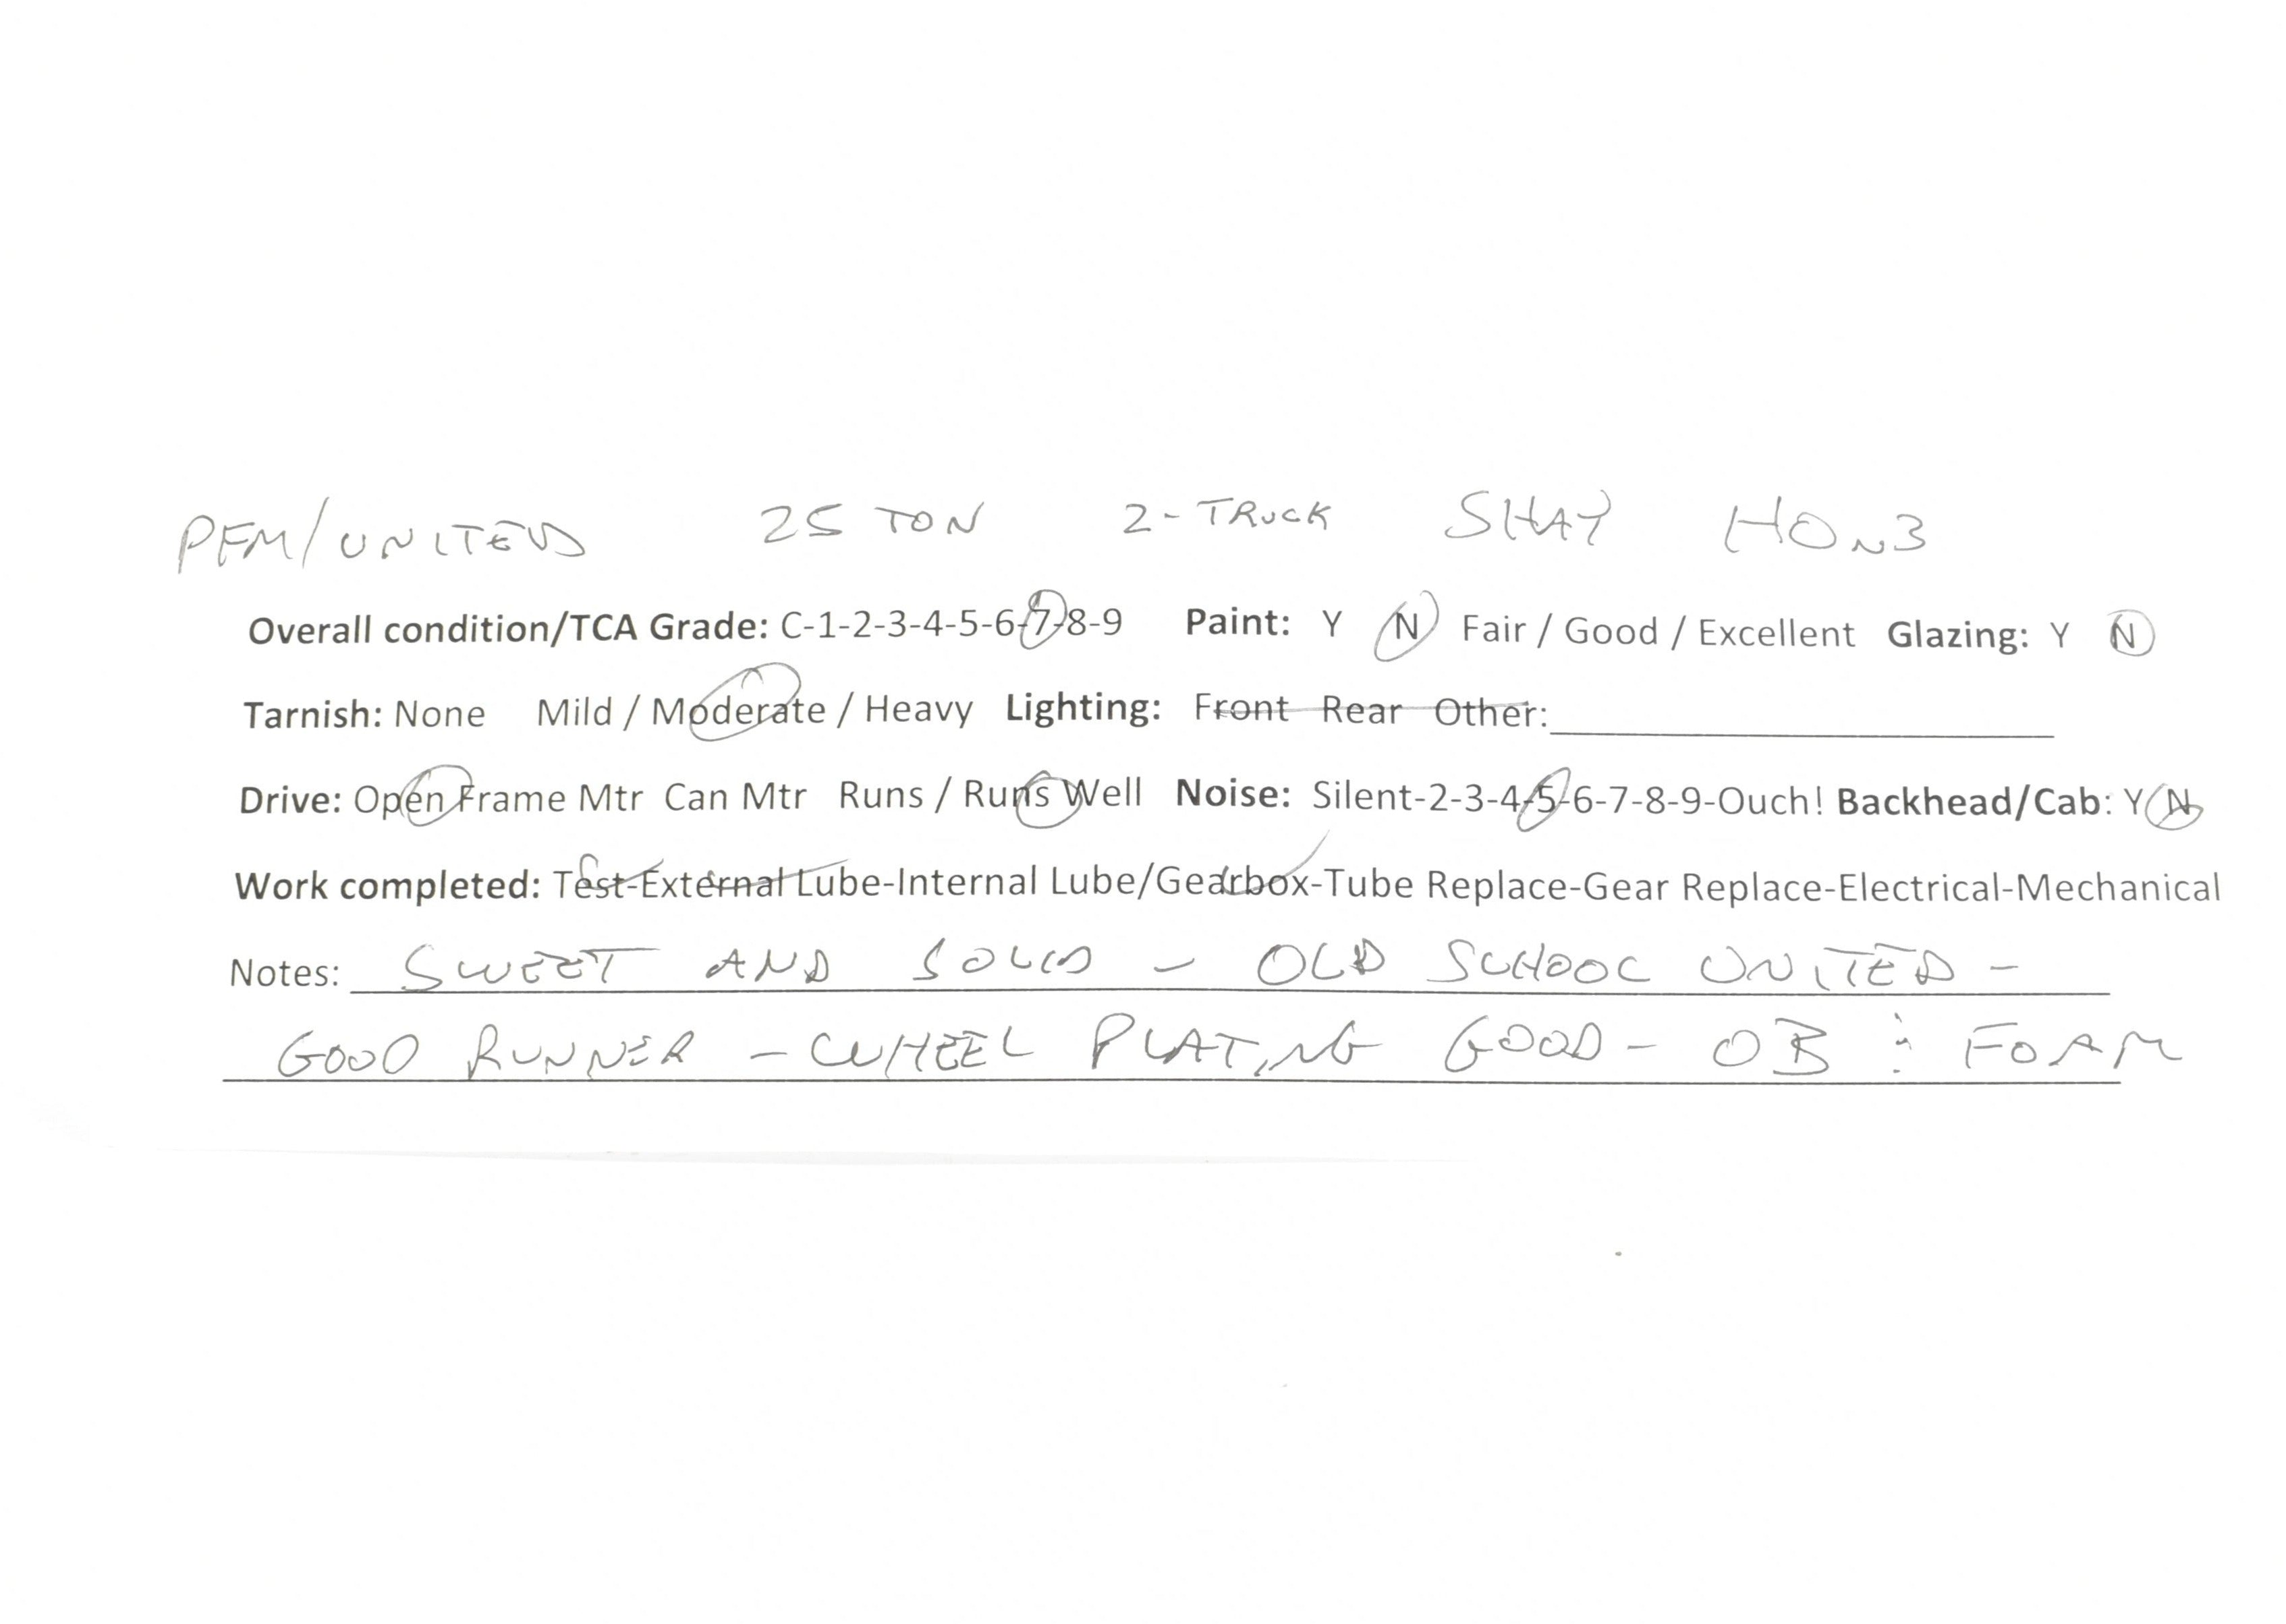 PFM/UNITED 25 TON 2-TRUCK SHAY HOn3
Overall condition/TCA Grade: C-1-2-3-4-5-6-7-8-9 Paint: Y N Fair / Good / Excellent Glazing: Y N
Tarnish: None Mild / Moderate / Heavy Lighting: Front Rear Other:
Drive: Open Frame Mtr Can Mtr Runs / Runs Well Noise: Silent-2-3-4-5-6-7-8-9-Ouch! Backhead/Cab: Y N
Work completed: Test-External Lube-Internal Lube/Gearbox-Tube Replace-Gear Replace-Electrical-Mechanical
Notes: SWEET AND SOLID - OLD SCHOOL UNITED -
GOOD RUNNER - WHEEL PLATING GOOD - OB & FOAM